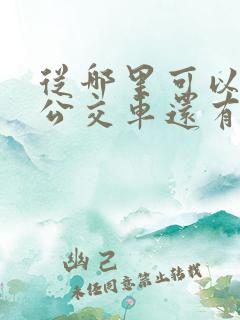 從哪里可以
公交車還有
幽己
未经同意禁止转载